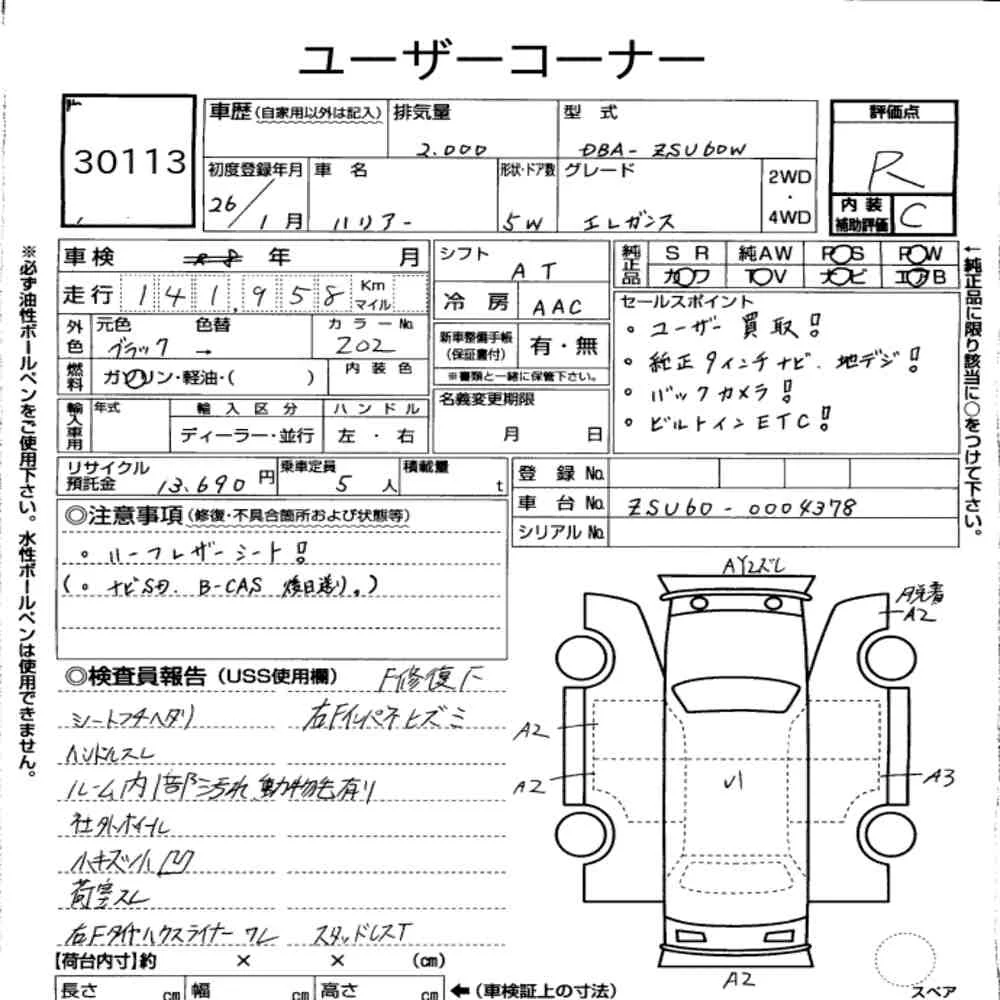 ユーザーコーナー
30113
車歴(自家用以外は記入) 排気量 型 式 評価点
2.000 DBA- ZSU60W R
初度登録年月 車 名 形状・ドア数 グレード 2WD・4WD 内装補助評価 C
26/1月 ハリアー 5W エレガンス
車検 R8 年 月
走行 141,958 Km マイル
シフト AT
冷房 AAC
純正品 SR 純AW P○S P○W
カワ TV ナビ エアB
外色 元色 色替 カラーNo.
ブラック → 202
燃料 ガソリン・軽油・( ) 内装色
新車整備手帳(保証書付) 有・無
※書類と一緒に保管下さい。
セールスポイント
。ユーザー買取!
。純正9インチナビ. 地デジ!
。バックカメラ!
。ビルトインETC!
輸入車用 年式 輸入区分 ハンドル
ディーラー・並行 左・右
名義変更期限
月 日
リサイクル預託金 13.690円 乗車定員 5人 積載量 t
登録No.
車台No. ZSU60-0004378
シリアルNo.
◎注意事項(修復・不具合箇所および状態等)
。ハーフレザーシート!
(。ナビSD. B-CAS 後日送り。)
◎検査員報告(USS使用欄) F修復歴
シートコゲヘタリ 右Fインパネヒズミ
ハンドルスレ
ルーム内1部汚れ 動物毛有り
社外ホイル
小キズ小凹
荷室スレ
右Fタイヤハウスライナーワレ スタッドレスT
【荷台内寸】約 × × (cm)
長さ cm 幅 cm 高さ cm ←(車検証上の寸法)
AY2ズレ
脱着
A2
A2
A2
A3
A2
スペア
※必ず油性ボールペンをご使用下さい。水性ボールペンは使用できません。
←純正品に限り該当に○をつけて下さい。